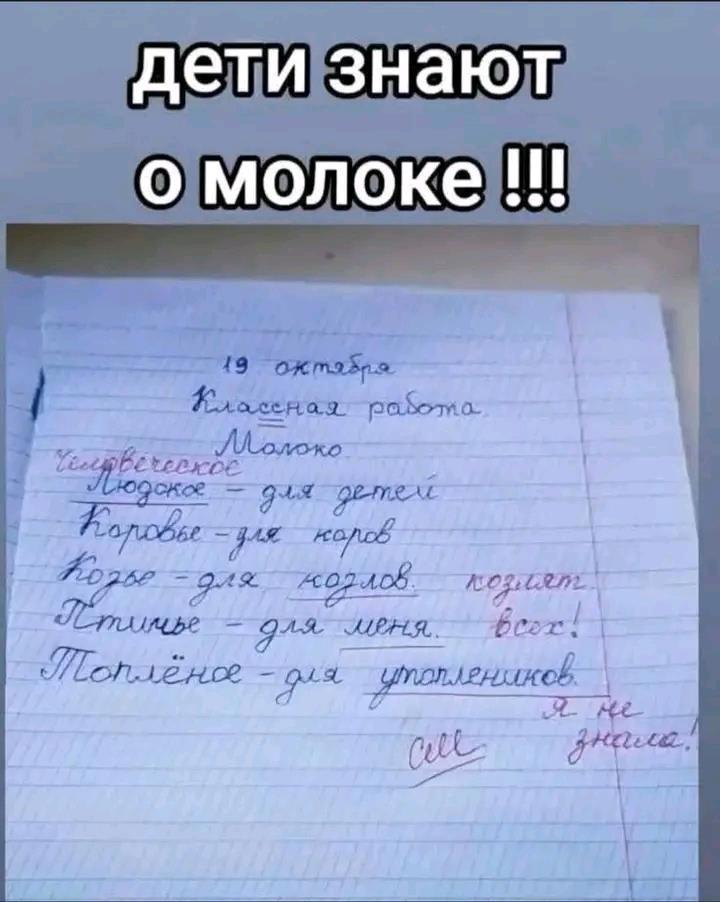 дети знают
о молоке !!!
19 октября
Классная работа.
Молоко
Человеческое
Людское – для детей
Коровье – для коров
Козье – для козлов. козлят
Птичье – для меня. всех!
Топлёное – для утоплеников.
я не
см знала!